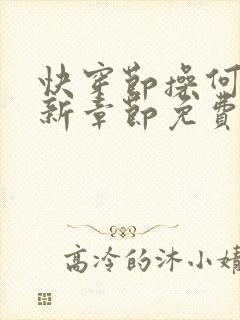 快穿節操何
新章節免費
高冷的沐小婧